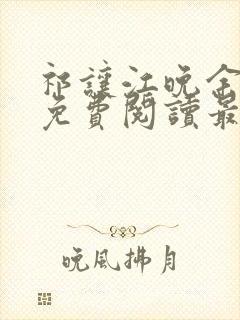 祁讓江晚全
免費閱讀最
晚風拂月